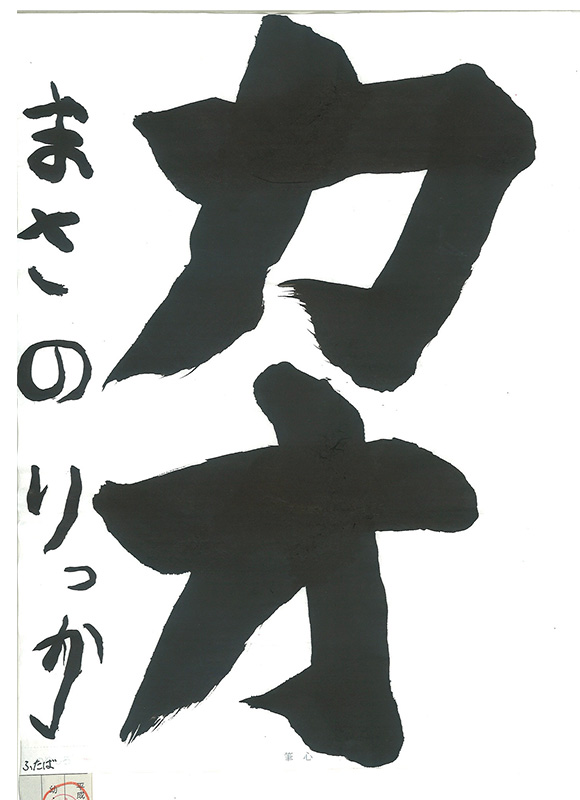 カオ
まさのりっか
筆心
ふたば
平成
幼